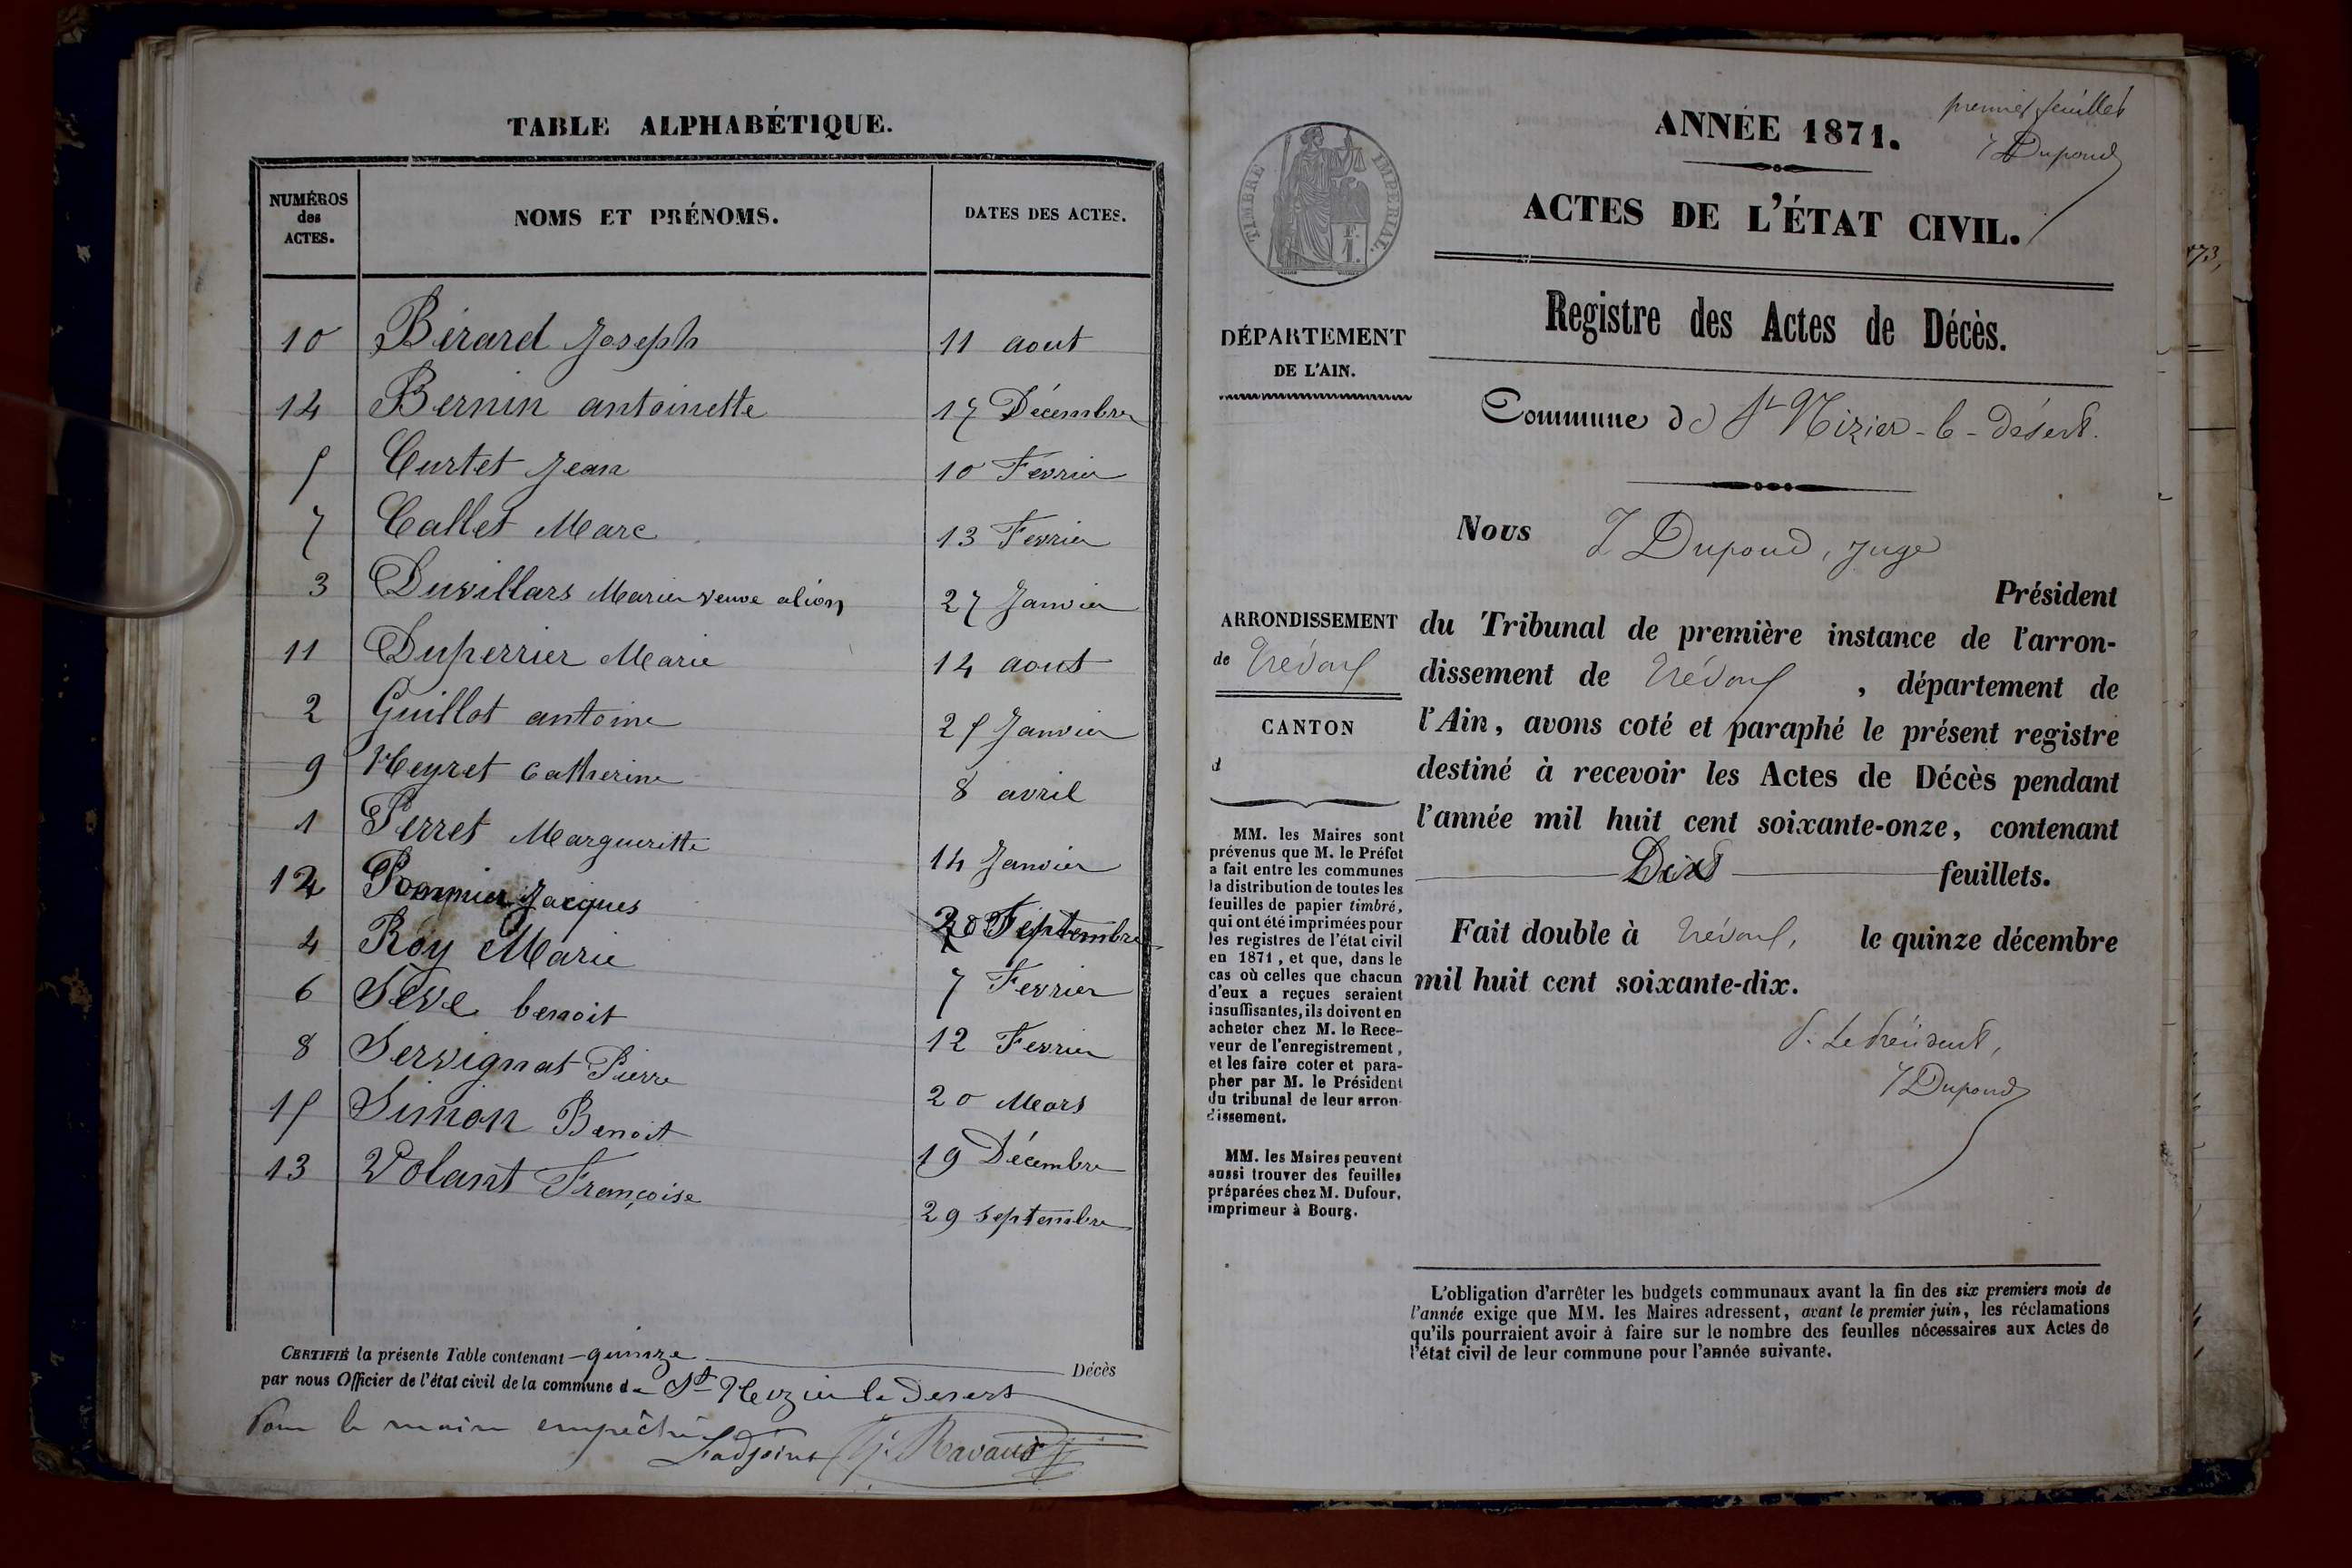 TABLE ALPHABÉTIQUE.
NUMÉROS des ACTES. NOMS ET PRÉNOMS. DATES DES ACTES.
10 Bérard Joseph 11 aout
14 Bernin antoinette 17 Décembre
5 Curtet Jean 10 Fevrier
7 Callet Marc 13 Fevrier
3 Duvillars Marie veuve alion 27 Janvier
11 Duperrier Marie 14 aout
2 Guillot antoine 25 Janvier
9 Neyret Catherine 8 avril
1 Perret Margueritte 14 Janvier
12 Pommier Jacques 20 Septembre
4 Roy Marie 7 Fevrier
6 Sève benoit 12 Fevrier
8 Servignat Pierre 20 Mars
15 Simon Benoit 19 Décembre
13 Volant Françoise 29 septembre
CERTIFIÉ la présente Table contenant quinze Décès
par nous Officier de l'état civil de la commune de St Nizier le Desert
Pour le maire empêché
L'adjoint Ravaud
premier feuillet
J Dupond
TIMBRE IMPÉRIAL.
F. 1.
ANNÉE 1871.
ACTES DE L'ÉTAT CIVIL.
Registre des Actes de Décès.
DÉPARTEMENT
DE L'AIN.
Commune de St Nizier-le-Désert.
Nous J Dupond, Juge
Président
du Tribunal de première instance de l'arron-
dissement de Trévoux, département de
l'Ain, avons coté et paraphé le présent registre
destiné à recevoir les Actes de Décès pendant
l'année mil huit cent soixante-onze, contenant
Dix feuillets.
Fait double à Trévoux, le quinze décembre
mil huit cent soixante-dix.
P. Le Président,
J Dupond
ARRONDISSEMENT
de Trévoux
CANTON
d
MM. les Maires sont
prévenus que M. le Préfet
a fait entre les communes
la distribution de toutes les
feuilles de papier timbré,
qui ont été imprimées pour
les registres de l'état civil
en 1871, et que, dans le
cas où celles que chacun
d'eux a reçues seraient
insuffisantes, ils doivent en
acheter chez M. le Rece-
veur de l'enregistrement,
et les faire coter et para-
pher par M. le Président
du tribunal de leur arron-
dissement.
MM. les Maires peuvent
aussi trouver des feuilles
préparées chez M. Dufour,
imprimeur à Bourg.
L'obligation d'arrêter les budgets communaux avant la fin des six premiers mois de
l'année exige que MM. les Maires adressent, avant le premier juin, les réclamations
qu'ils pourraient avoir à faire sur le nombre des feuilles nécessaires aux Actes de
l'état civil de leur commune pour l'année suivante.